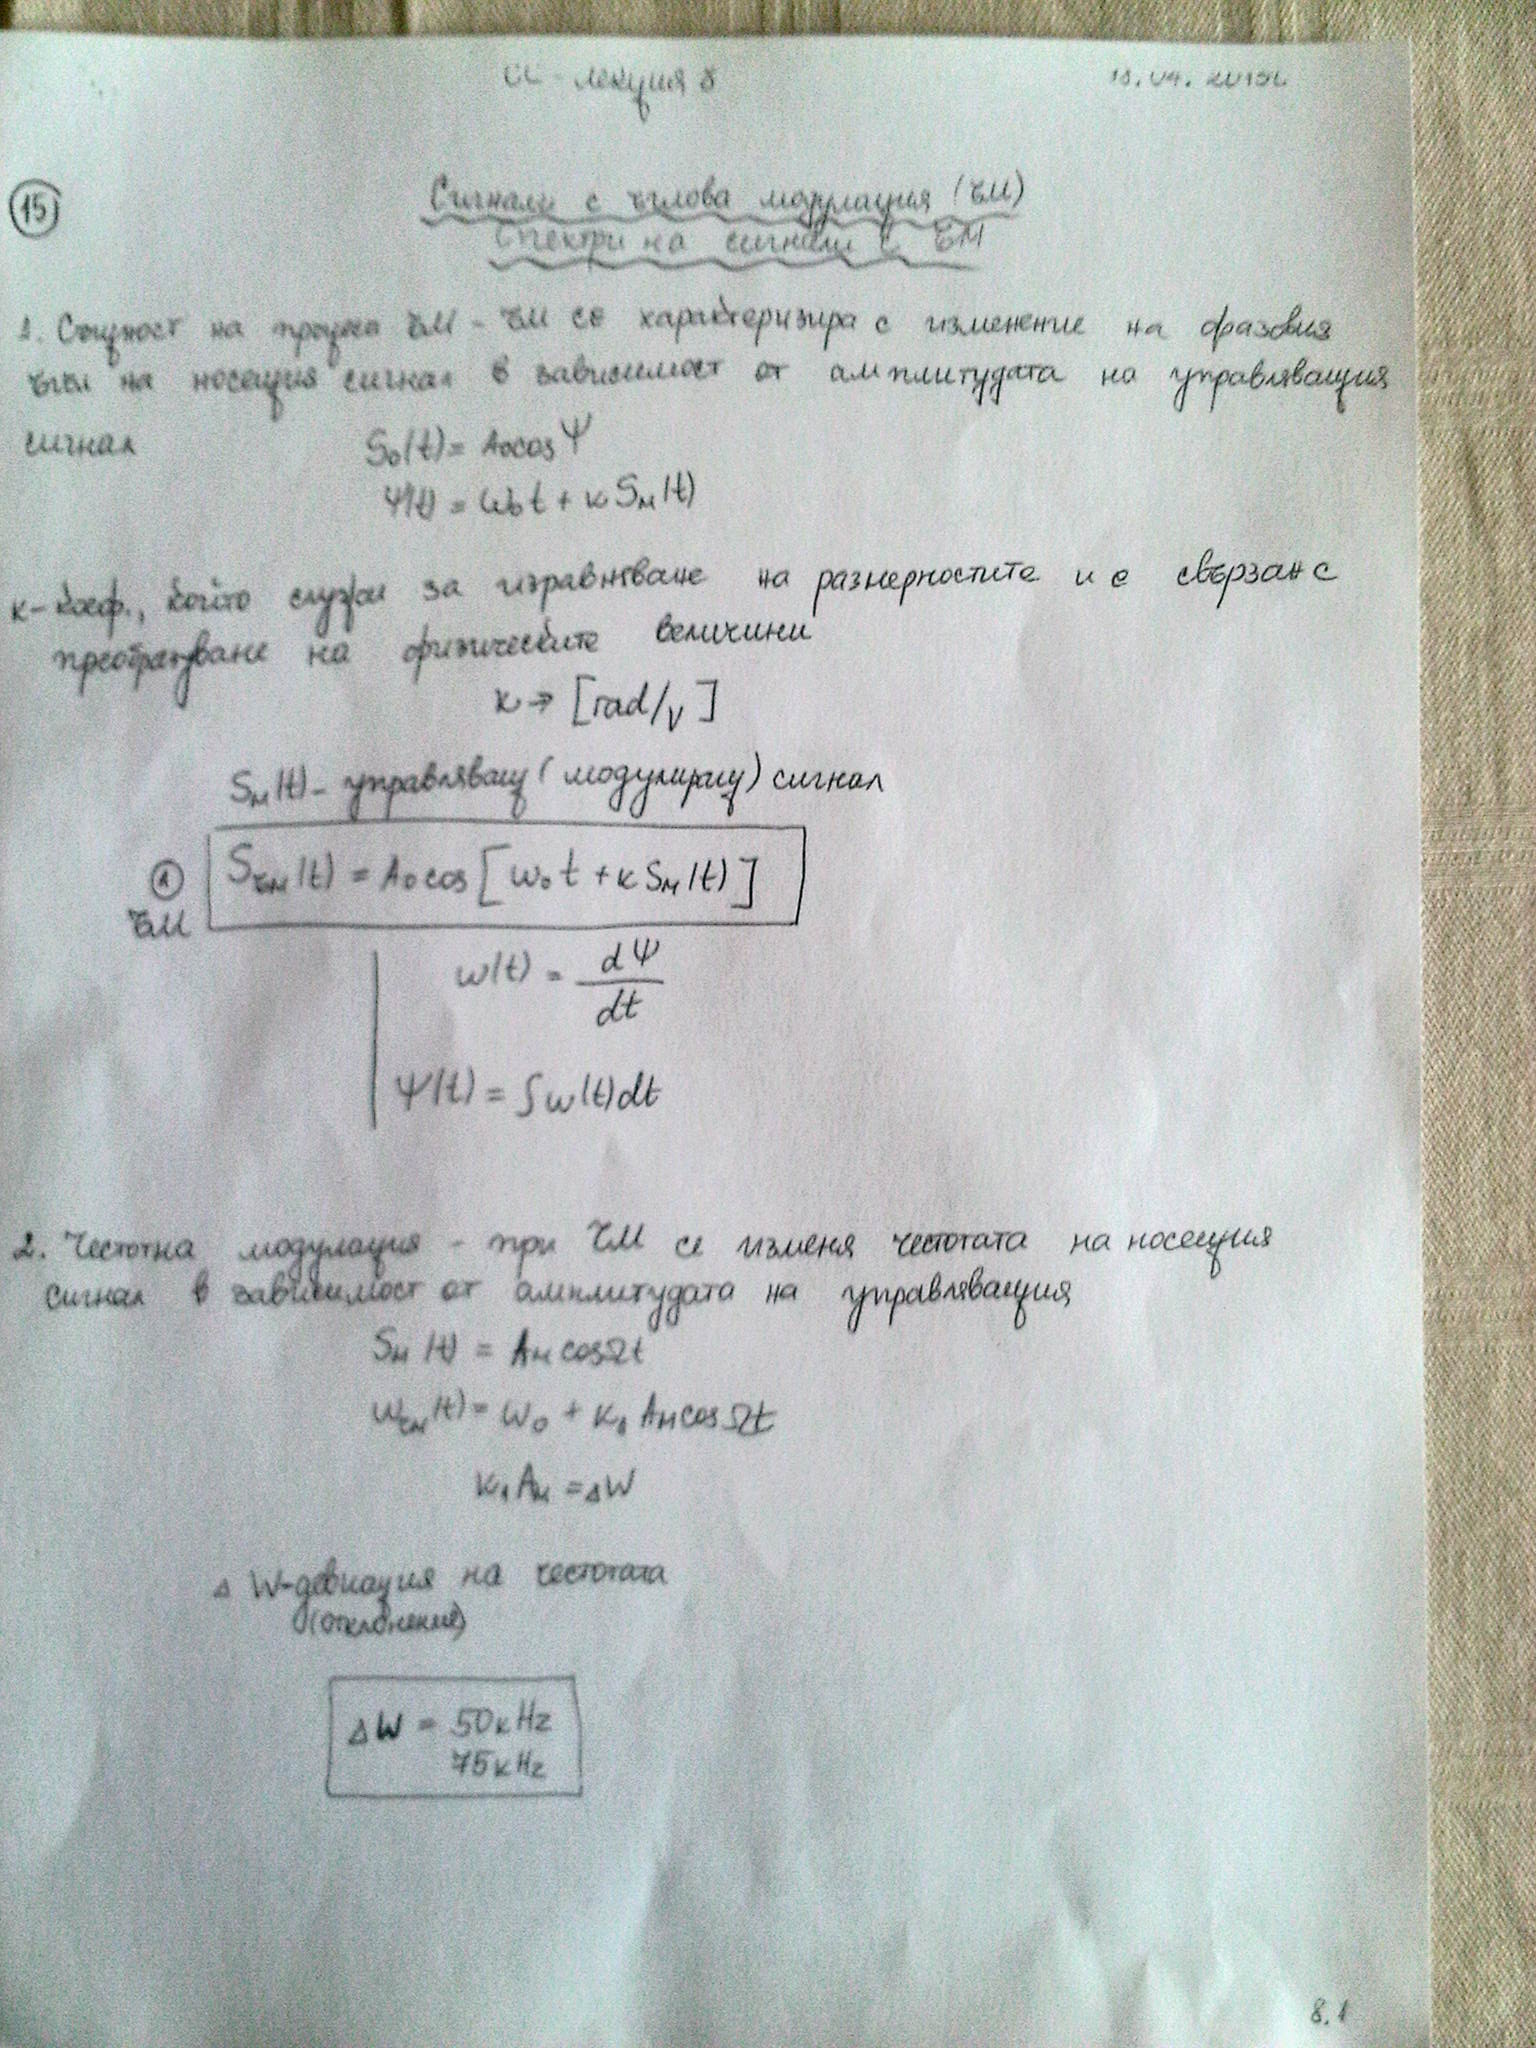 СС - лекция 8 18.04.2013г.
15
Сигнали с ъглова модулация (ЪМ)
Спектри на сигнали с ЪМ
1. Същност на процеса ЪМ - ЪМ се характеризира с изменение на фазовия
ъгъл на носещия сигнал в зависимост от амплитудата на управляващия
сигнал S₀(t) = A₀cosΨ
Ψ(t) = ω₀t + кSм(t)
к - коеф., който служи за изравняване на размерностите и е свързан с
преобразуване на физическите величини
к → [rad/V]
Sм(t) - управляващ (модулиращ) сигнал
① Sъм(t) = A₀cos[ω₀t + кSм(t)]
ЪМ
ω(t) = dΨ/dt
Ψ(t) = ∫ω(t)dt
2. Честотна модулация - при ЧМ се изменя честотата на носещия
сигнал в зависимост от амплитудата на управляващия
Sм(t) = AмcosΩt
ωчм(t) = ω₀ + к₁AмcosΩt
к₁Aм = ΔW
ΔW - девиация на честотата
(отклонение)
ΔW = 50кHz
75кHz
8.1